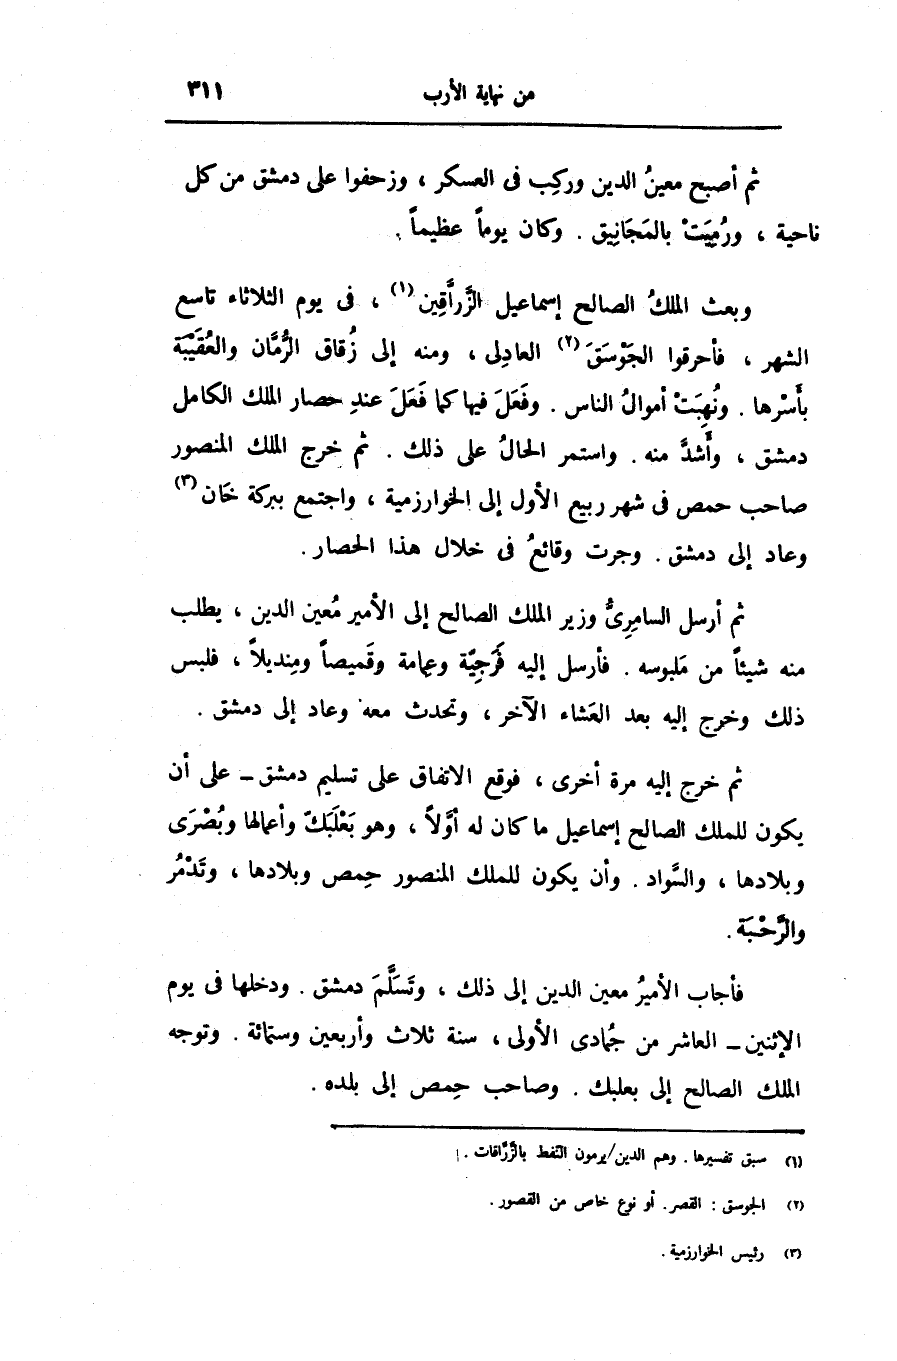 من نهاية الأرب ٣١١
ثم أصبح معينُ الدين وركِب فى العسكر ، وزحفوا على دمشق من كل
ناحية ، ورُمِيَتْ بالمَجَانِيق . وكان يوماً عظيماً .
وبعث الملكُ الصالح إسماعيل الزَّرَّاقِين (١) ، فى يوم الثلاثاء تاسع
الشهر ، فأحرقوا الجَوْسَقَ (٢) العادِلى ، ومنه إلى زُقاق الرُّمَّان والعُقَيْبَة
بأَسْرها . ونُهِبَتْ أموالُ الناس . وفَعَلَ فيها كما فَعَلَ عند حصار الملك الكامل
دمشق ، وأَشدَّ منه . واستمر الحالُ على ذلك . ثم خرج الملك المنصور
صاحب حمص فى شهر ربيع الأول إلى الخوارزمية ، واجتمع ببركة خَان (٣)
وعاد إلى دمشق . وجرت وقائعُ فى خلال هذا الحصار .
ثم أرسل السامِرِىُّ وزير الملك الصالح إلى الأمير مُعين الدين ، يطلب
منه شيئاً من مَلبوسه . فأرسل إليه فَرَجِيّة وعِمامة وقَميصاً ومِنديلاً ، فلبس
ذلك وخرج إليه بعد العَشاء الآخر ، وتحدث معه وعاد إلى دمشق .
ثم خرج إليه مرة أخرى ، فوقع الاتفاق على تسليم دمشق ــ على أن
يكون للملك الصالح إسماعيل ما كان له أوَّلاً ، وهو بَعْلَبَكّ وأعمالها وبُصْرَى
وبلادها ، والسَّواد . وأن يكون للملك المنصور حِمص وبلادها ، وتَدْمُر
والرَّحْبَة .
فأجاب الأميرُ معين الدين إلى ذلك ، وتَسَلَّمَ دمشق . ودخلها فى يوم
الإثنين ــ العاشر من جُمادى الأولى ، سنة ثلاث وأربعين وستمائة . وتوجه
الملك الصالح إلى بعلبك . وصاحب حِمص إلى بلده .
(١) سبق تفسيرها . وهم الدين/يرمون النّفط بالزَّرَّاقات .
(٢) الجوسق : القصر . أو نوع خاص من القصور .
(٣) رئيس الخوارزمية .